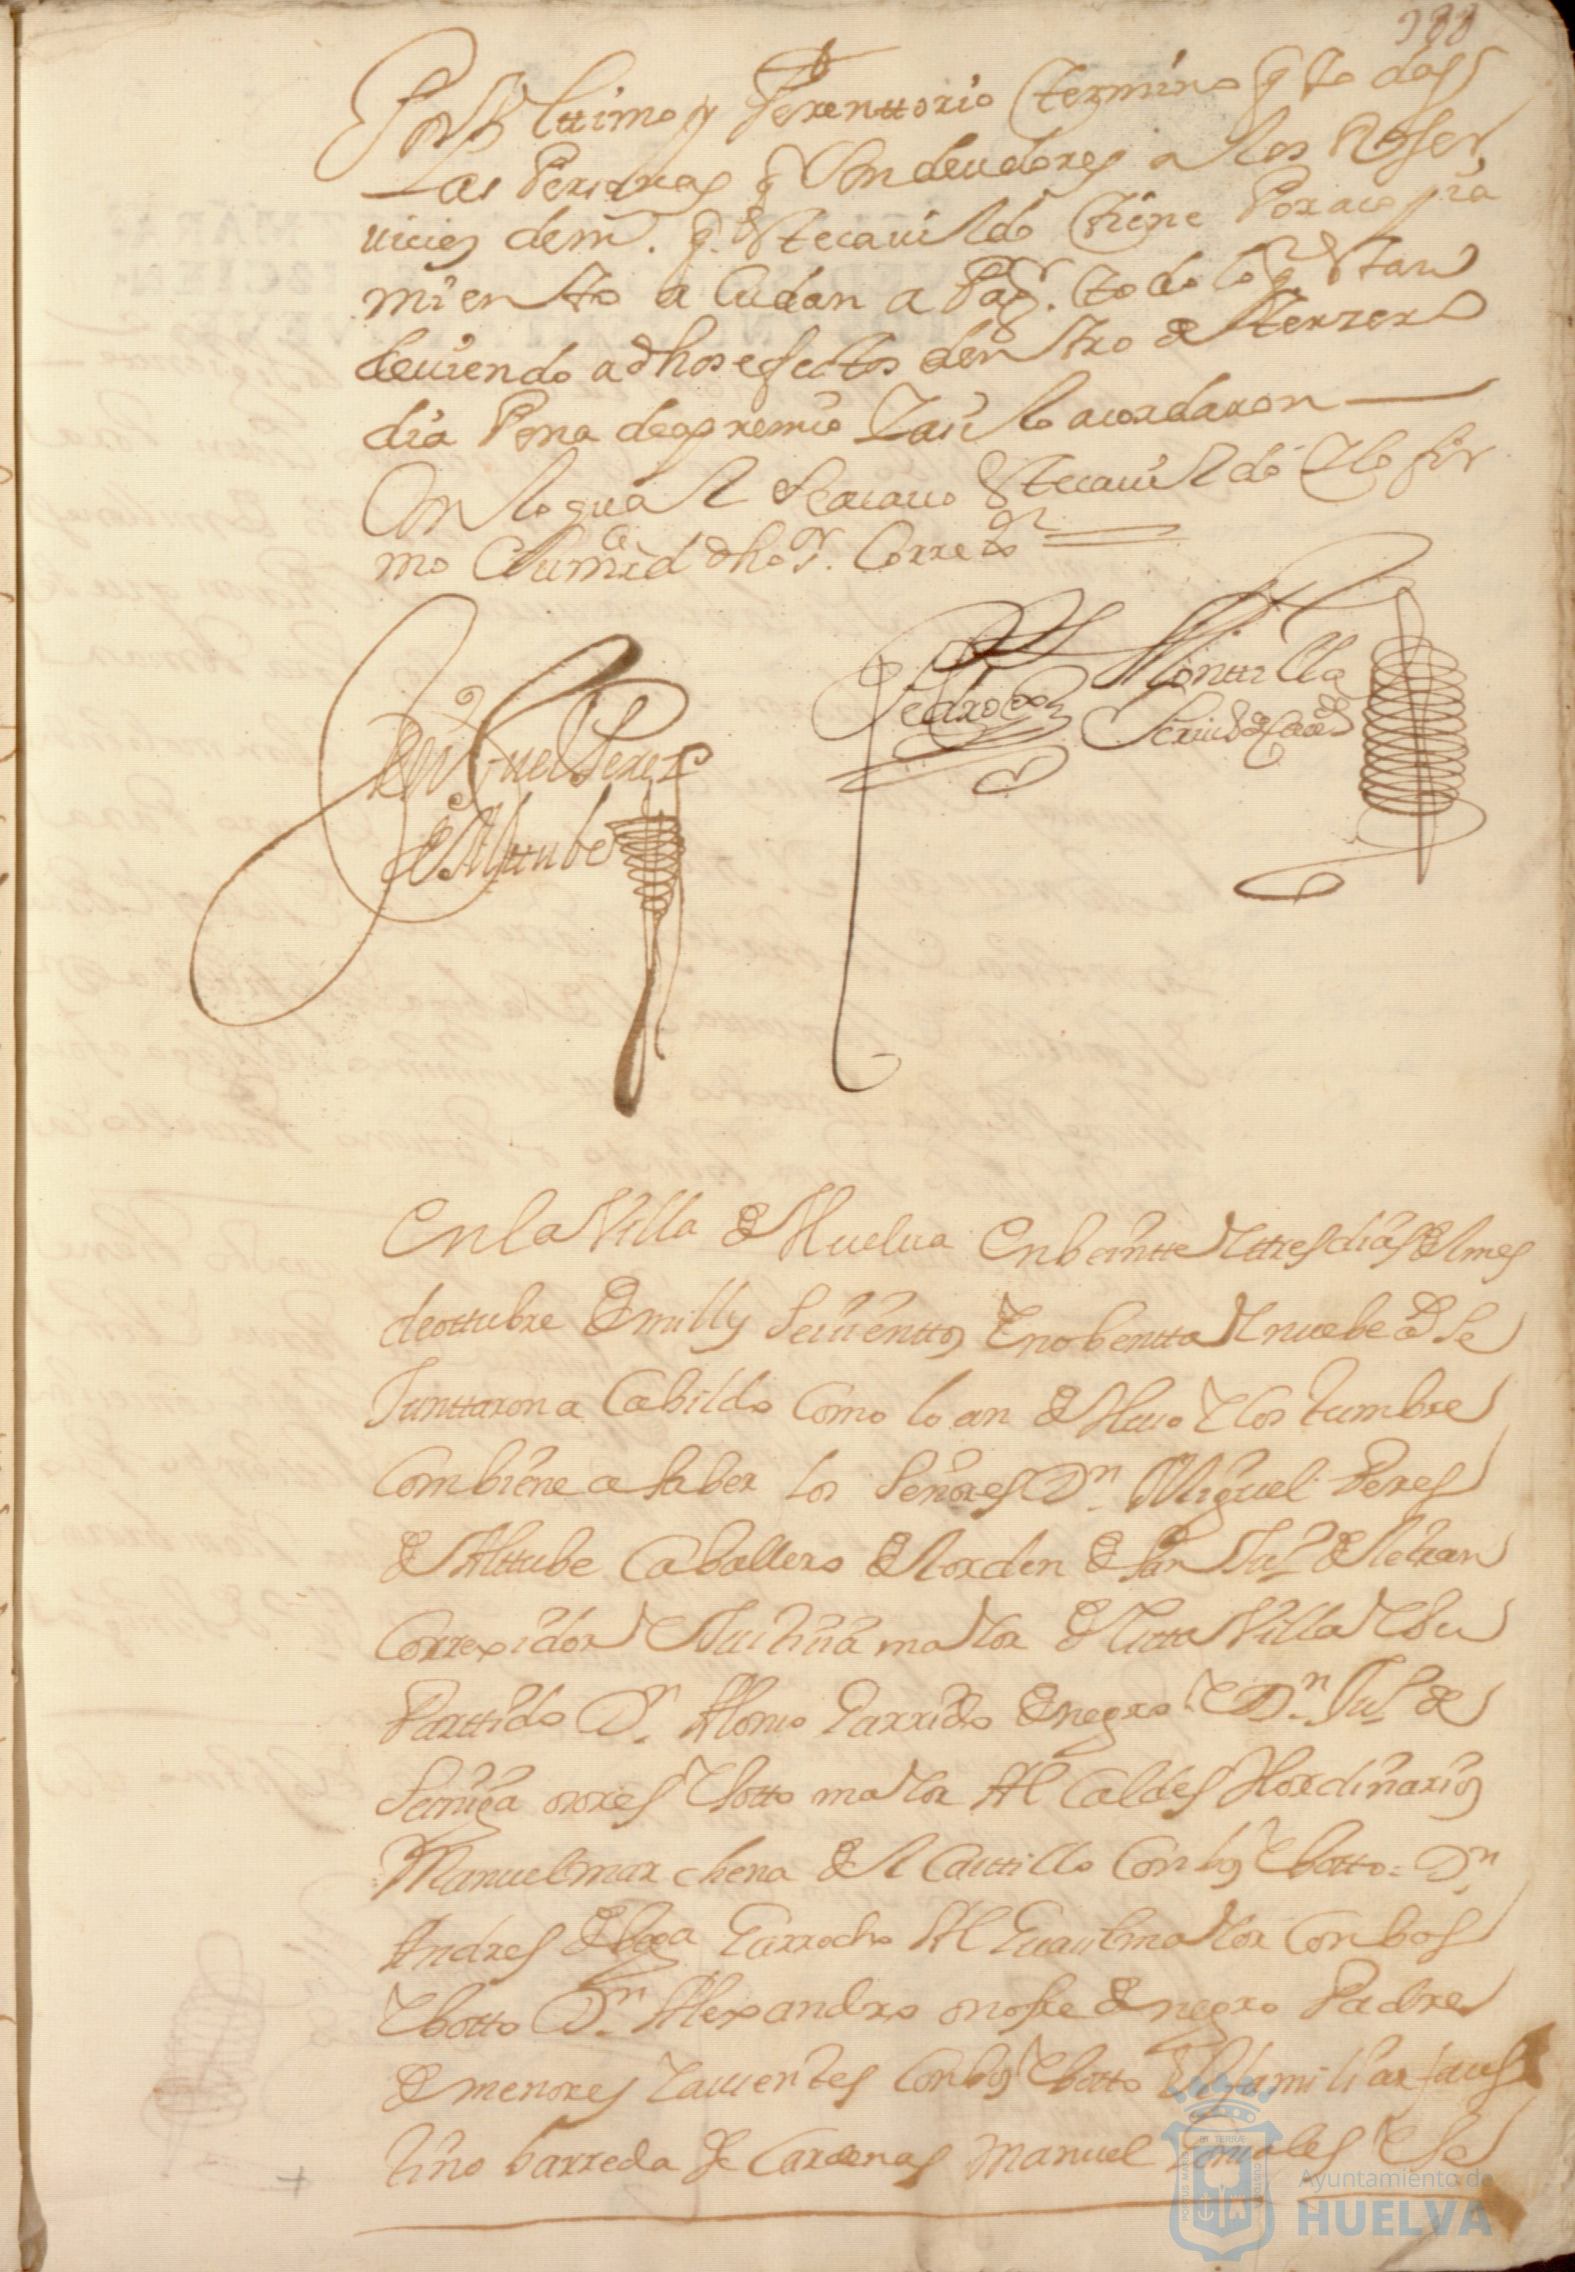 188
Por Vlttimo y Perenttorio termino q̃ todas
las Personas q̃ son deudores a los Refer
uicios de m. q̃ este cauildo tiene Por acopia
miento acudan a Pag.r todo lo q̃ estan
deuiendo a dhos efectos dentro de terzero
dia Pena de apremio Y asi lo acordaron
Con lo qual se acauo este cauildo Y lo fir
mo Su mrd dho S.r Corre.or
Dn Miguel Perez
de Alttube
Pedro Monttilla
Scriu.o de Cau.do
En la Villa de Huelua En beintte Y ttres dias del mes
de ottubre de mill y Seicienttos Y nobentta Y nuebe as Se
Junttaron a Cabildo Como lo an de Huso Y Costumbre
Combiene a saber los Señores Dn. Miguel Peres
de Alttube Caballero del orden de San Ju.o de letran
Correxidor Y Justicia maior de estta Villa Y Su
Parttido Dn. Alonso Garrido de negro Y Dn. Ju.o de
Suniga ores Y sotto maior Al Caldes Hordinarios
Manuel marchena del Casttillo Con bos Y botto = Dn.
Andres de bega Garrocho Al Guasil maior Con bos
Y botto Dn. Alexandro onofre de negro Padre
de menores Y ausentes Con bos Y botto el familiar faus
tino barreda de Cardenas Manuel Gonsales Y Se
PORTUS MARIS
ET TERRÆ
CUSTODIA
Ayuntamiento de
HUELVA